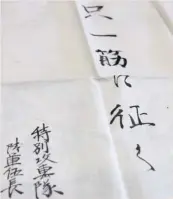 只一筋に征く
特別攻撃隊
陸軍伍長